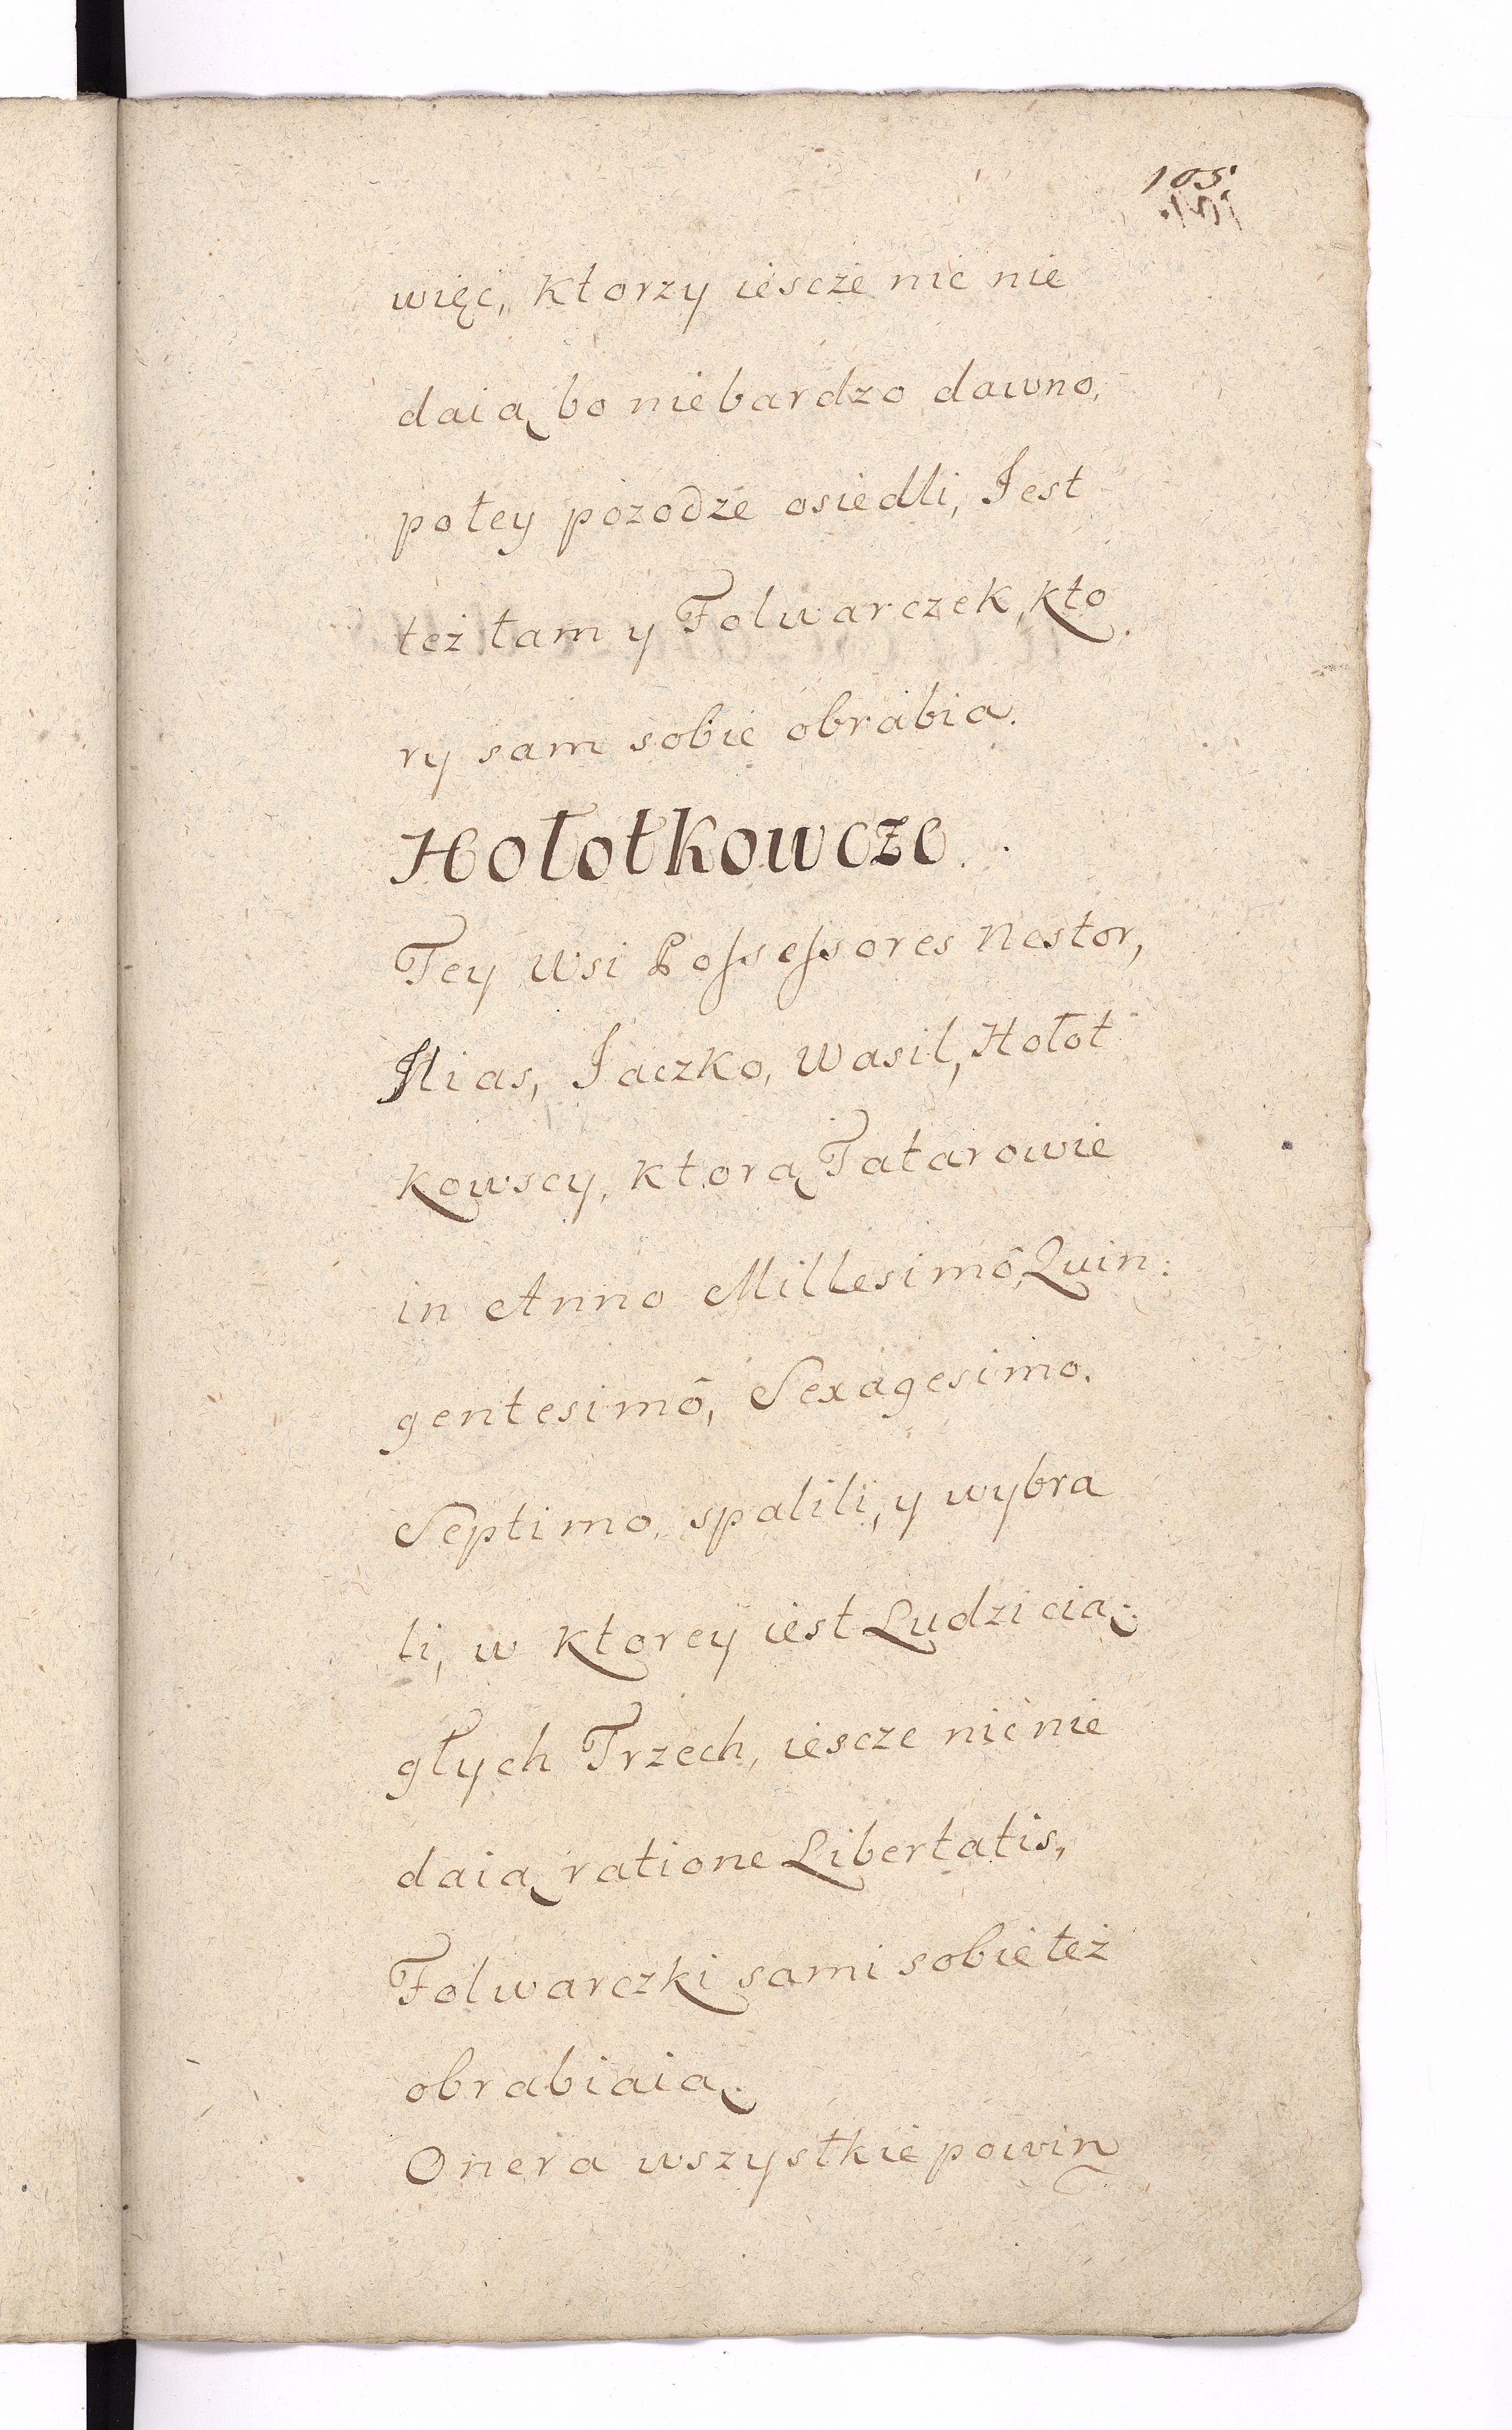 105.
więc, ktorzy iescze nic nie
daią bo niebardzo dawno,
potey pozodze osiedli, Jest
też tam y Folwarczek, kto
ry sam sobie obrabia.
Hołotkowcze.
Tey wsi Possessores Nestor,
Ilias, Jaczko, Wasil, Hołot
kowscy, ktorą Tatarowie
in Anno Millesimô, Quin:
gentesimô, Sexagesimo.
Septimo, spalili, y wybra
li, w ktorey iest Ludzi cią:
głych Trzech, iescze nic nie
daią ratione Libertatis,
Folwarczki sami sobie też
obrabiaią.
Onera wszystkie powin